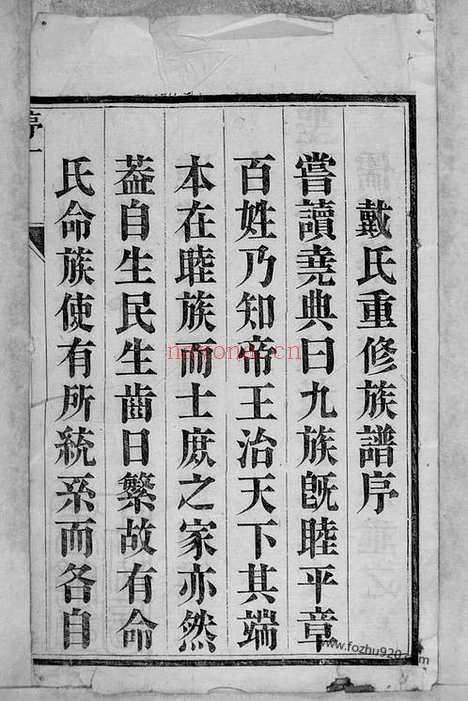 戴氏重修族譜序
嘗讀堯典曰九族旣睦平章
百姓乃知帝王治天下其端
本在睦族而士庶之家亦然
葢自生民生齒日繁故有命
氏命族使有所統系而各自
序一
nayona.cn
www.fozhu920.com